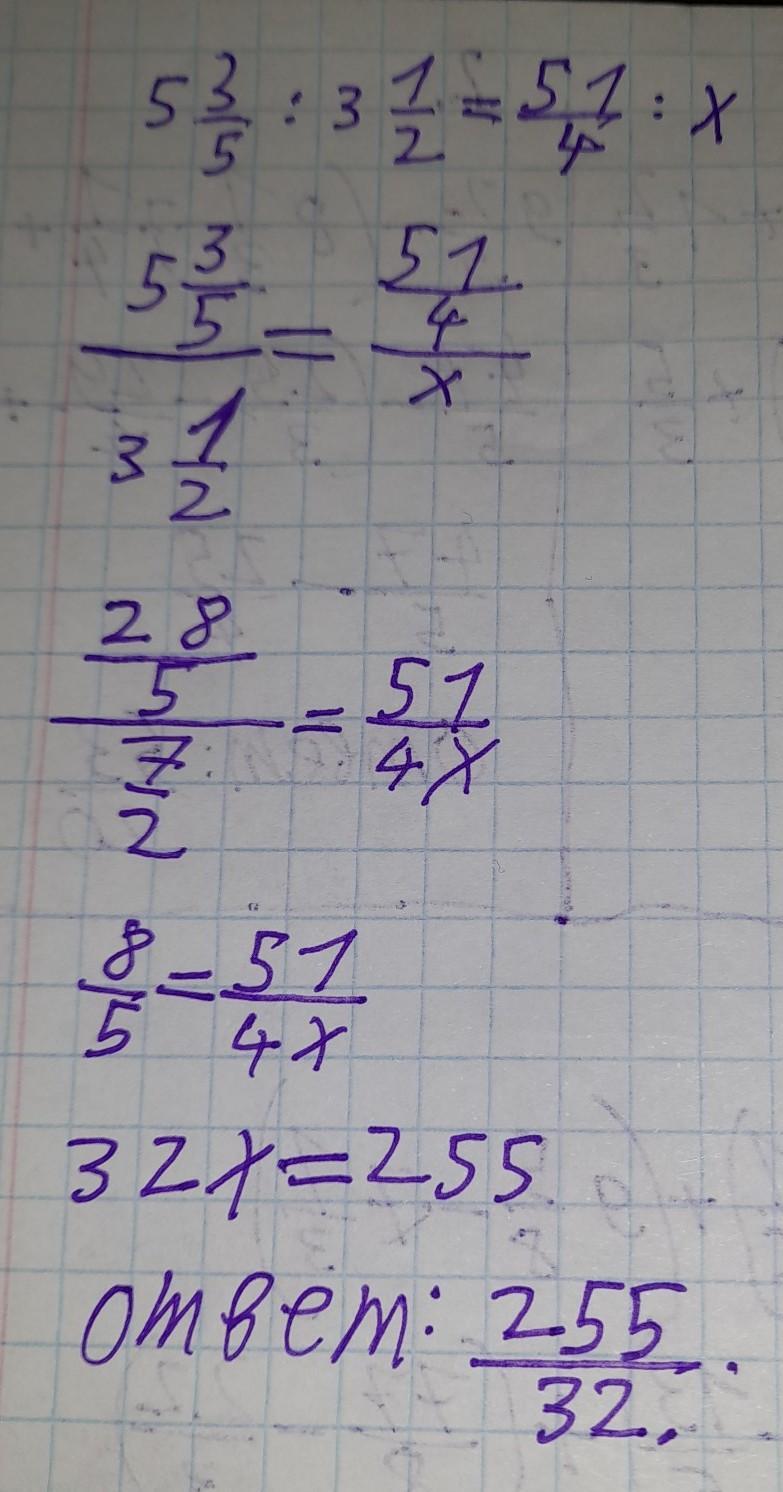 5 3/5 : 3 1/2 = 51/4 : x
(5 3/5)/(3 1/2) = (51/4)/x
(28/5)/(7/2) = 51/4x
8/5 = 51/4x
32x=255
ответ: 255/32.